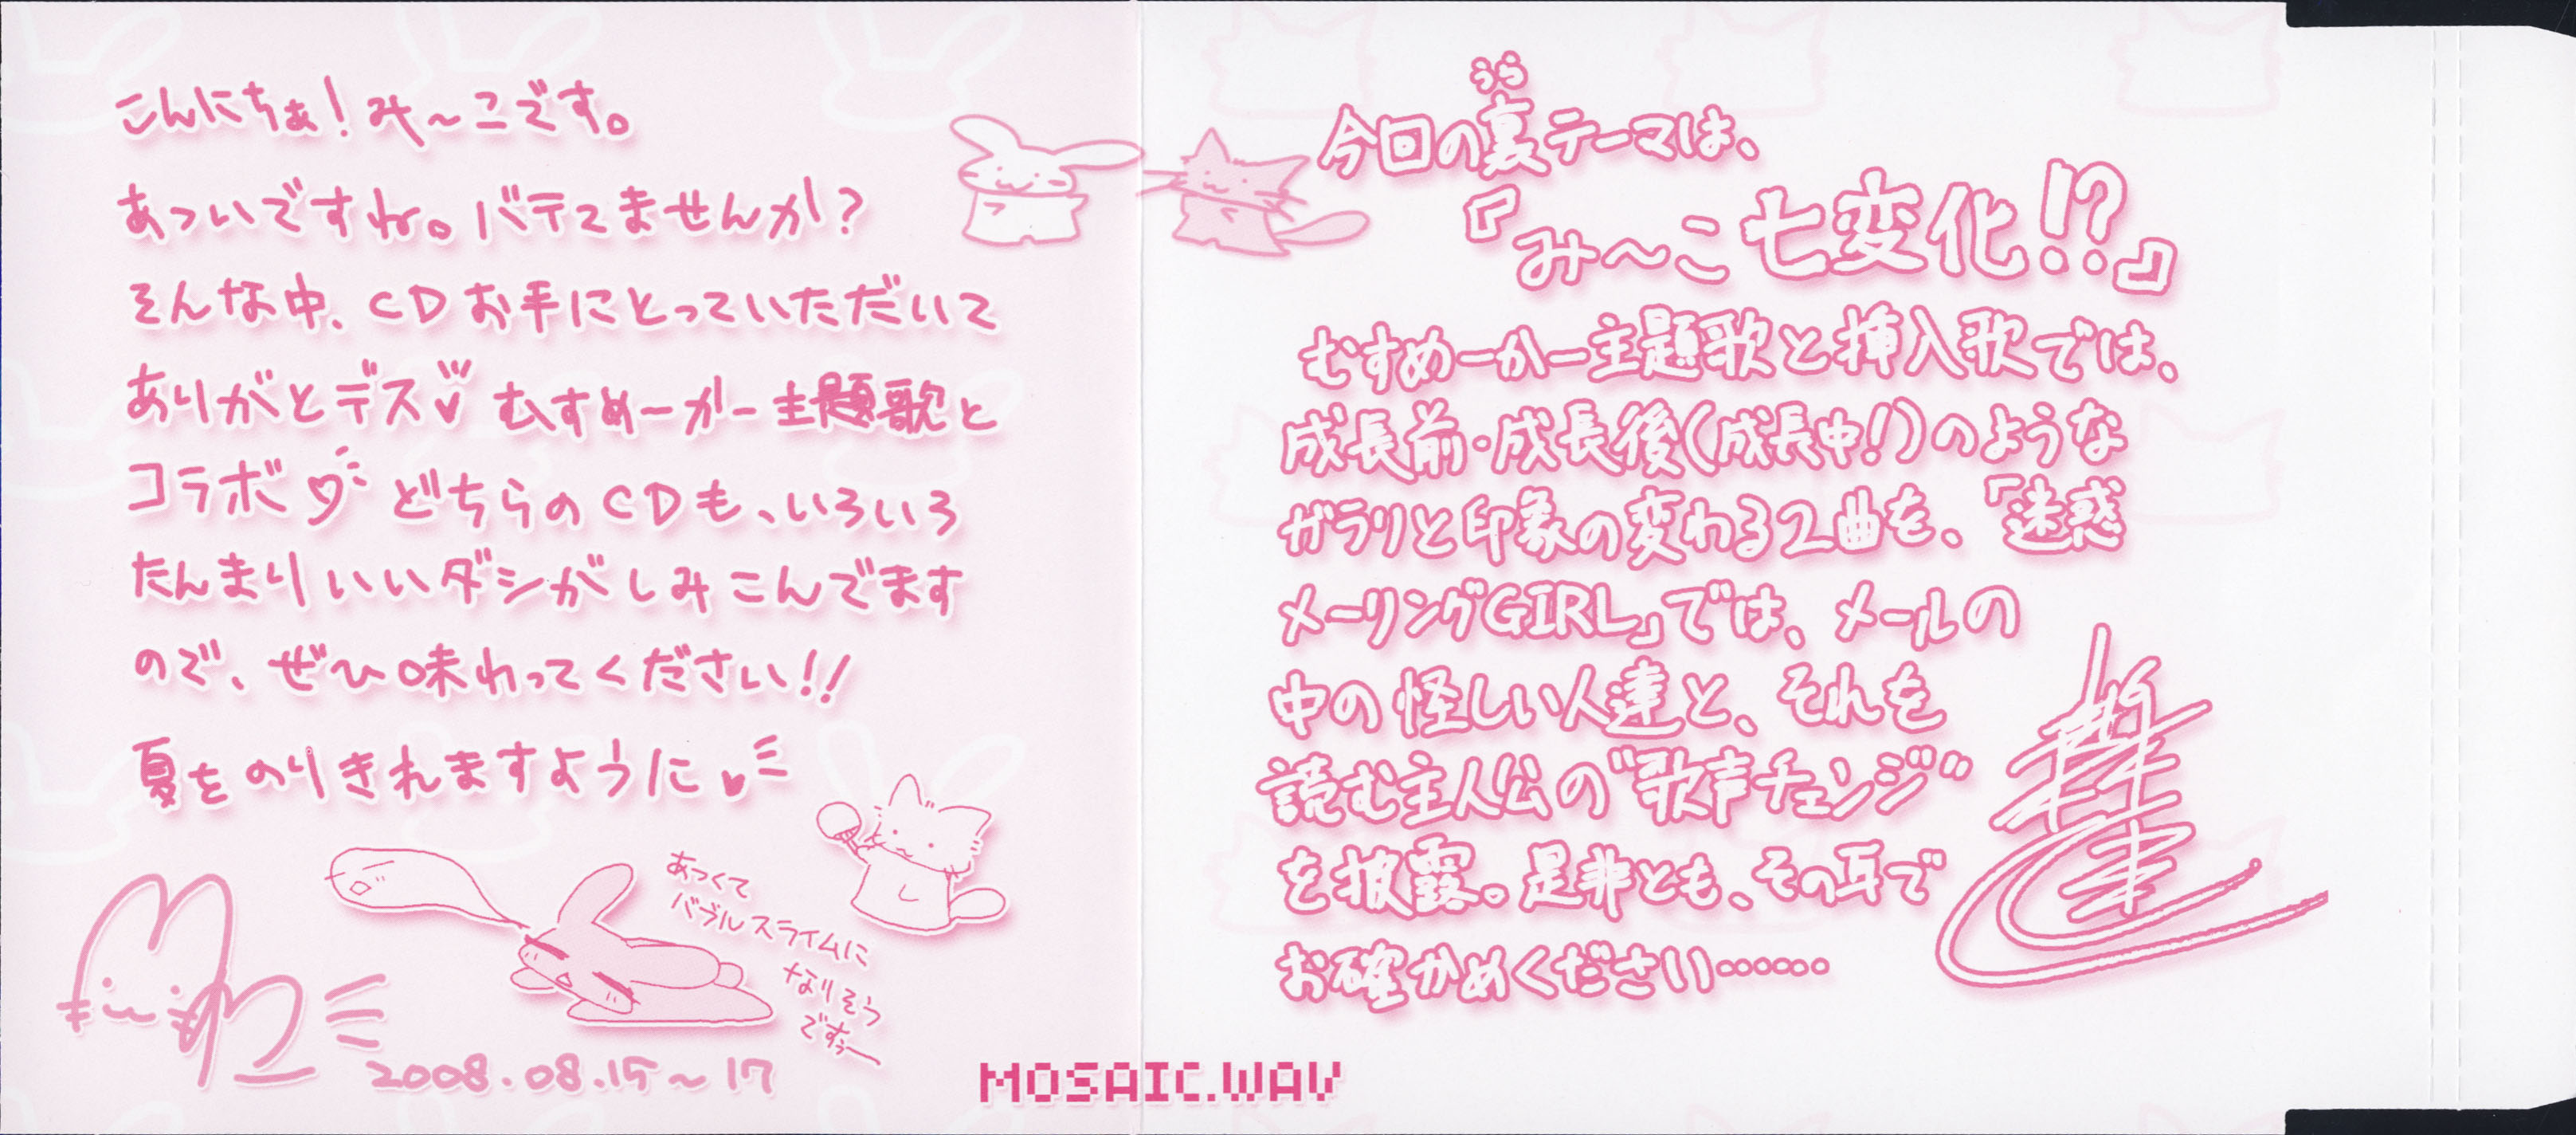 こんにちぁ！み〜こです。
あついですね。バテてませんか？
そんな中、CDお手にとっていただいて
ありがとデス♥むすめーかー主題歌と
コラボ♡どちらのCDも、いろいろ
たんまりいいダシがしみこんでます
ので、ぜひ味わってください!!
夏をのりきれますように♥
あつくて
バブルスライムに
なりそう
ですぅー
み〜こ
2008.08.15〜17
MOSAIC.WAV
うら
今回の裏テーマは、
『み〜こ七変化!?』
むすめーかー主題歌と挿入歌では、
成長前・成長後(成長中!)のような
ガラリと印象の変わる2曲を、「迷惑
メーリングGIRL」では、メールの
中の怪しい人達と、それを
読む主人公の"歌声チェンジ"
を披露。是非とも、その耳で
お確かめください……